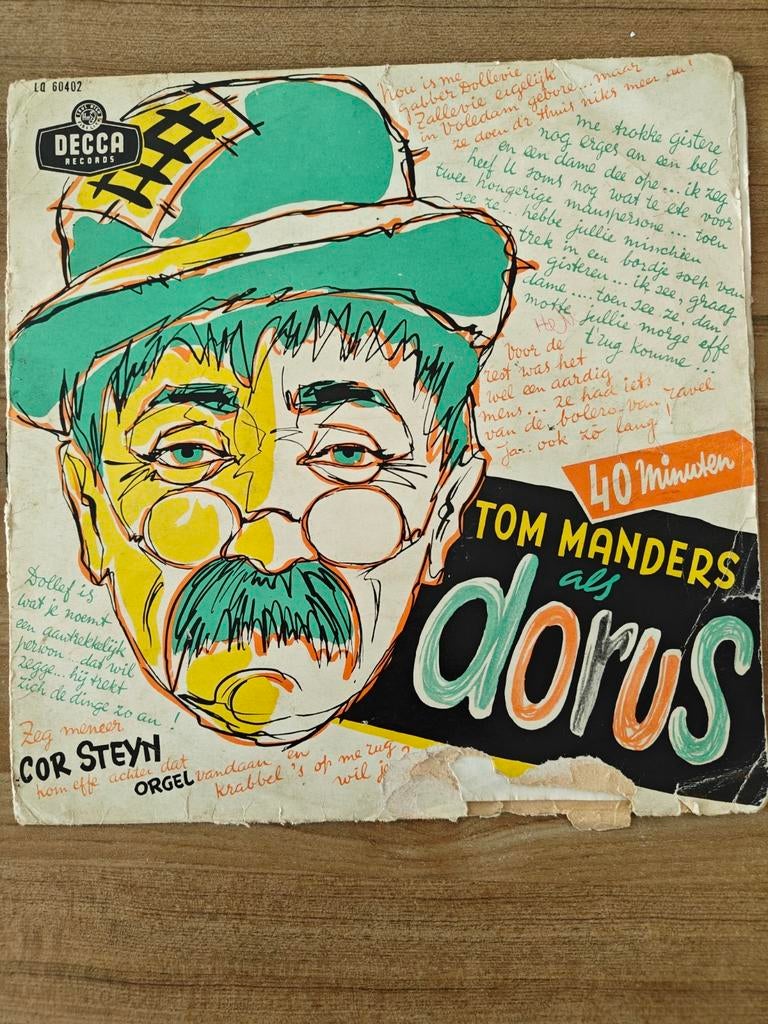 LQ 60402
DECCA
RECORDS
Nou is me
Gabber Dollevie
Zallevie eigelijk
in Voledam gebore... maar
ze doen d'r thuis niks meer an!
me trokke gistere
nog erges an een bel
en een dame dee ope... ik zeg
heef U soms nog wat te ete voor
twee hongerige manspersone... toen
see ze... hebbe jullie misschien
trek in een bordje soep van
gisteren... ik see, graag
dame.... toen see ze, dan
motte jullie morge effe
t'rug komme...
Voor de
rest was het
wel een aardig
mens... ze had iets
van de bolero van ravel
ja.. ook zo lang!
40 Minuten
TOM MANDERS
als
dorus
Dollef is
wat je noemt
een aantrekkelijk
persoon.. dat wil
zegge... hij trekt
zich de dinge zo an!
Zeg meneer
COR STEYN
kom effe achter dat
ORGEL
vandaan en
krabbel 's op me rug
wil je?